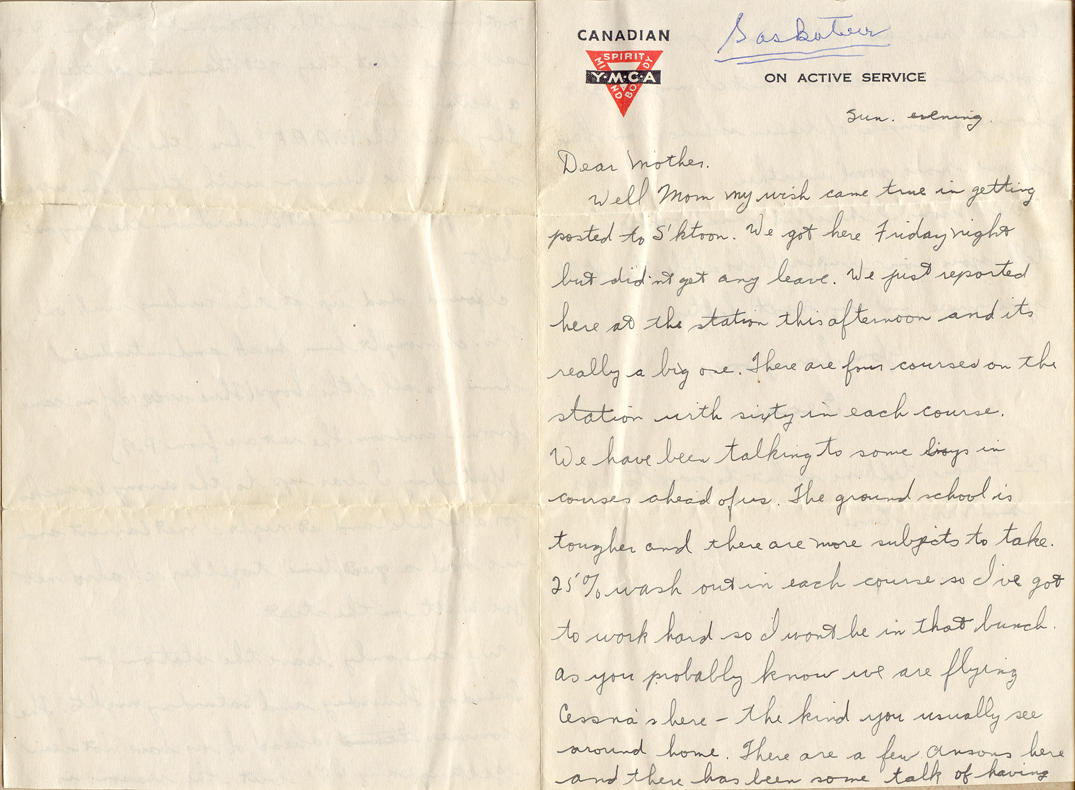 CANADIAN
SPIRIT
MIND
BODY
Y·M·C·A
Saskatoon
ON ACTIVE SERVICE
Sun. evening.
Dear Mother.
Well Mom my wish came true in getting
posted to S'ktoon. We got here Friday night
but did'nt get any leave. We just reported
here at the station this afternoon and its
really a big one. There are four courses on the
station with sixty in each course.
We have been talking to some boys in
courses ahead of us. The ground school is
tougher and there are more subjects to take.
25% wash out in each course so I've got
to work hard so I wont be in that bunch.
As you probably know we are flying
Cessna's here – the kind you usually see
around home. There are a few Ansons here
and there has been some talk of having